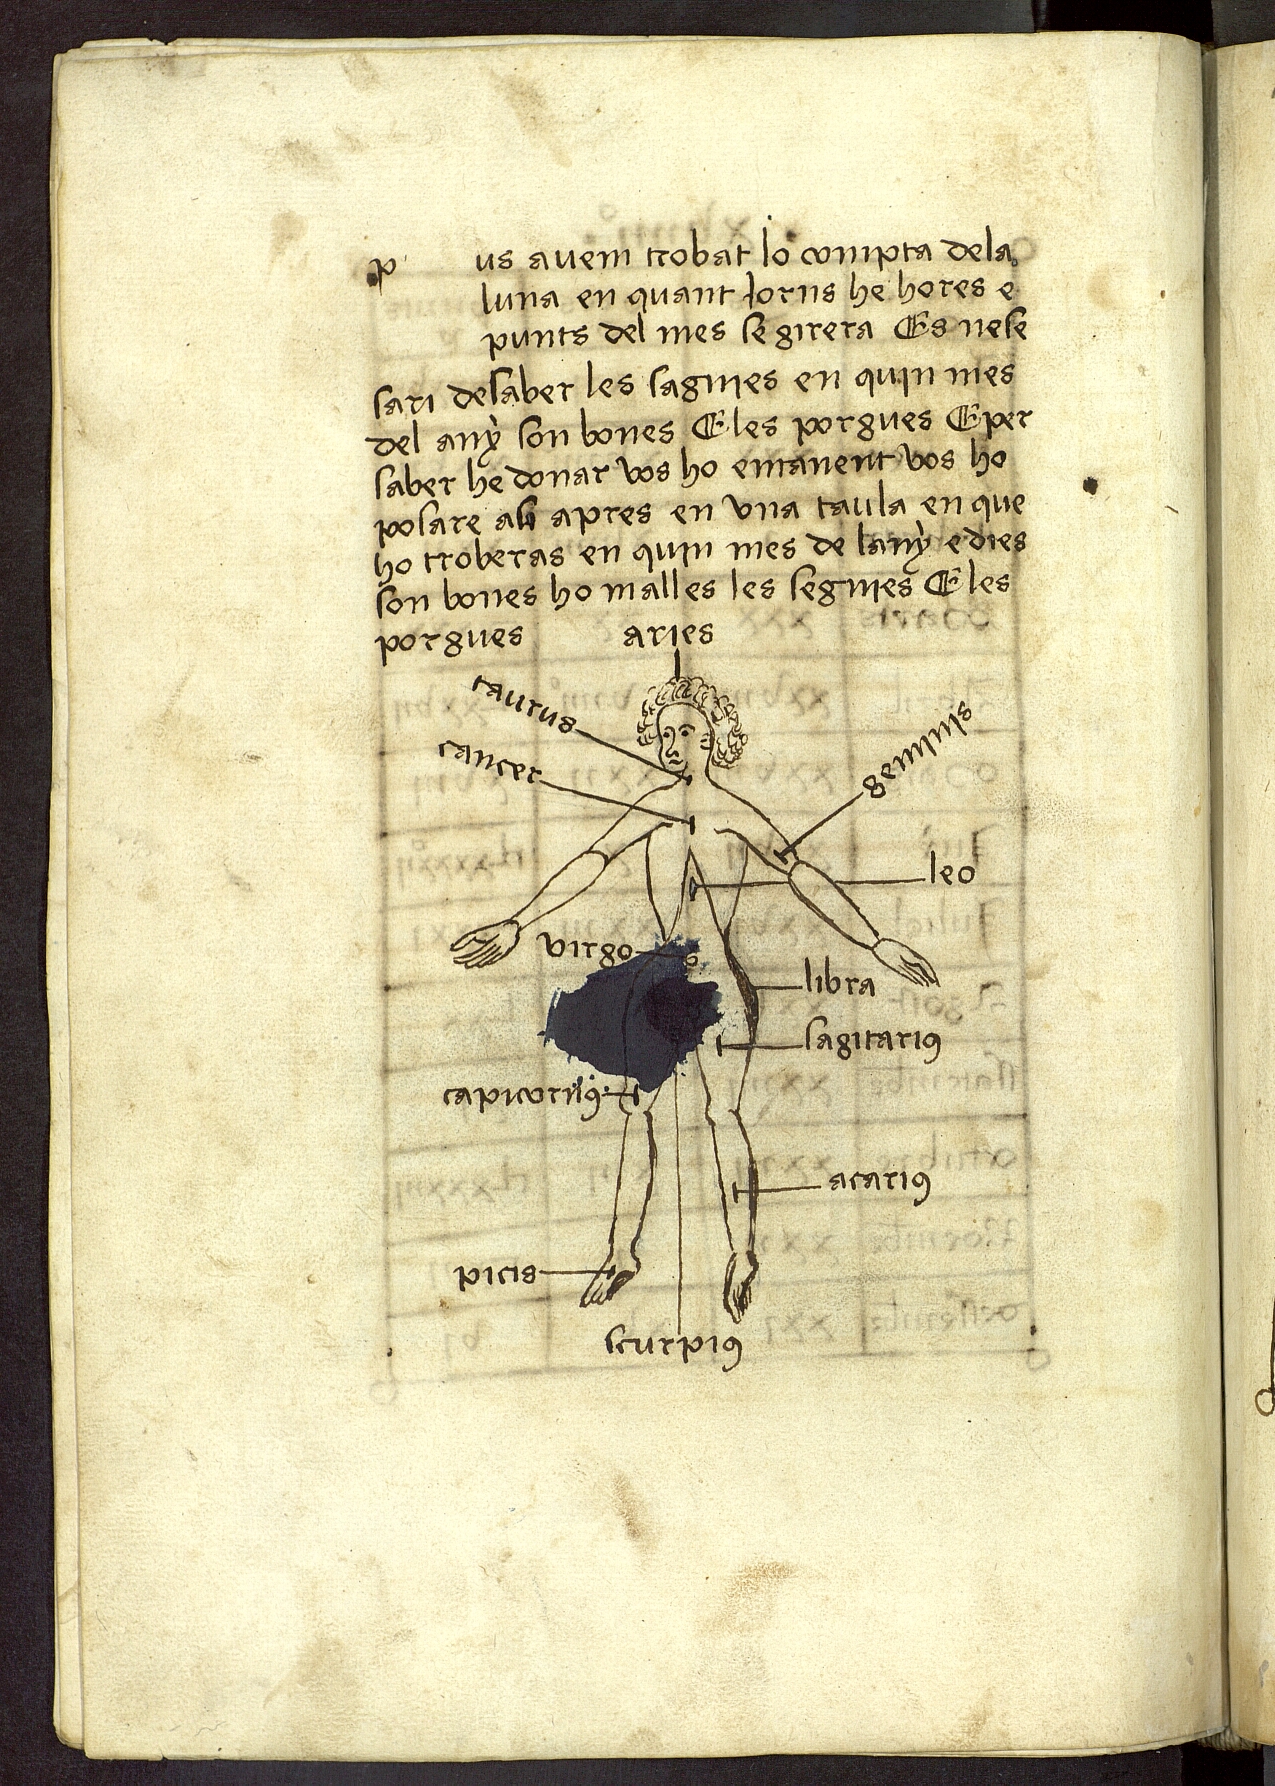 p us auem trobat lo compta dela
luna en quant jorns he hores e
punts del mes se girera Es nese
sari desaber les sagnies en quin mes
del any son bones E les porgues E per
saber he donar vos ho entanent vos ho
posare asi apres en vna taula en que
ho troberas en quin mes de lany e dies
son bones ho malles les segnies E les
porgues
aries
taurus
cancer
geminis
leo
virgo
libra
sagitari9
capicorni9
acari9
picis
scurpi9